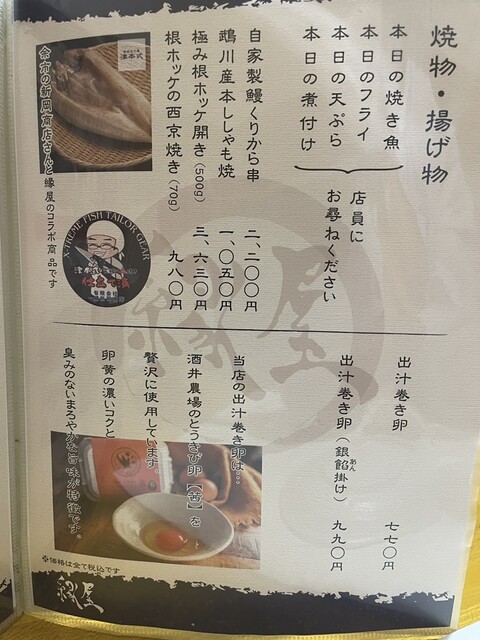 焼物・揚げ物
本日の焼き魚
本日のフライ
本日の天ぷら
本日の煮付け
店員に
お尋ねください
自家製鰻くりから串 二、二〇〇円
鵡川産本ししゃも焼 一、〇五〇円
極み根ホッケ開き(500g) 三、六三〇円
根ホッケの西京焼き(70g) 九八〇円
余市の新岡商店さんと縁屋のコラボ商品です
X-TREME FISH TAILOR GEAR
縁屋
出汁巻き卵 七七〇円
出汁巻き卵(銀餡掛け) 九九〇円
あん
当店の出汁巻き卵は…
酒井農場のとうきび卵【茜】を
贅沢に使用しています。
卵黄の濃いコクと
臭みのないまろやかな旨味が特徴です。
※価格は全て税込です
縁屋